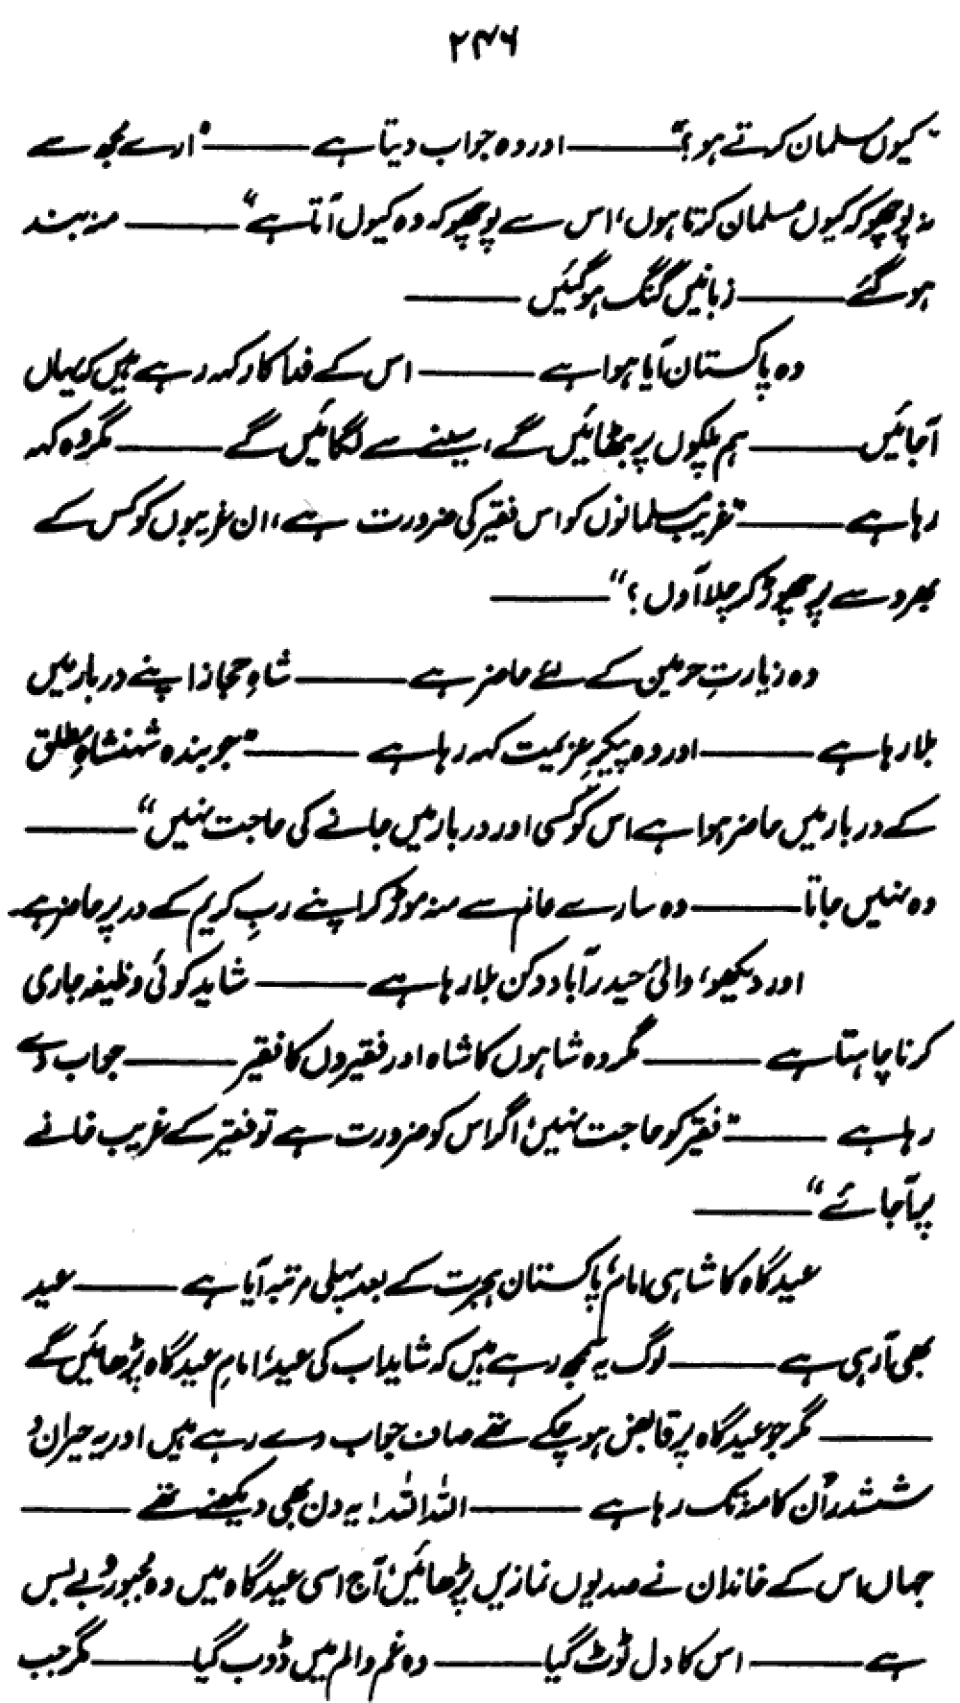 ۲۴۶
"کیوں مسلمان کرتے ہو؟" ——— اور وہ جواب دیتا ہے ——— "ارے مجھ سے
نہ پوچھو کہ کیوں مسلمان کرتا ہوں، اس سے پوچھو کہ وہ کیوں آتا ہے" ——— منہ بند
ہو گئے ——— زبانیں گنگ ہو گئیں ———
وہ پاکستان آیا ہوا ہے ——— اس کے فداکار کہہ رہے ہیں کہ یہاں
آ جائیں ——— ہم پلکوں پر بٹھائیں گے، سینے سے لگائیں گے ——— مگر وہ کہہ
رہا ہے ——— "غریب مسلمانوں کو اس فقیر کی ضرورت ہے، ان غریبوں کو کس کے
بھروسے پر چھوڑ کر چلا آؤں؟" ———
وہ زیارتِ حرمین کے لئے حاضر ہے ——— شاہِ حجاز اپنے دربار میں
بلا رہا ہے ——— اور وہ پیکرِ عزیمت کہہ رہا ہے ——— "جو بندہ شہنشاہِ مطلق
کے دربار میں حاضر ہوا ہے اس کو کسی اور دربار میں جانے کی حاجت نہیں" ———
وہ نہیں جاتا ——— وہ سارے عالم سے منہ موڑ کر اپنے ربِ کریم کے در پر حاضر ہے۔
اور دیکھو، والیٔ حیدرآباد دکن بلا رہا ہے ——— شاید کوئی وظیفہ جاری
کرنا چاہتا ہے ——— مگر وہ شاہوں کا شاہ اور فقیروں کا فقیر ——— جواب دے
رہا ہے ——— "فقیر کو حاجت نہیں، اگر اس کو ضرورت ہے تو فقیر کے غریب خانے
پر آ جائے" ———
عیدگاہ کا شاہی امام، پاکستان ہجرت کے بعد پہلی مرتبہ آیا ہے ——— عید
بھی آ رہی ہے ——— لوگ یہ سمجھ رہے ہیں کہ شاید اب کی عید، امامِ عیدگاہ پڑھائیں گے
——— مگر جو عیدگاہ پر قابض ہو چکے تھے صاف جواب دے رہے ہیں اور یہ حیران و
ششدر اُن کا منہ تک رہا ہے ——— اللہ اللہ! یہ دن بھی دیکھنے تھے ———
جہاں اس کے خاندان نے صدیوں نمازیں پڑھائیں، آج اسی عیدگاہ میں وہ مجبور و بے بس
ہے ——— اس کا دل ٹوٹ گیا ——— وہ غم و الم میں ڈوب گیا ——— مگر جب